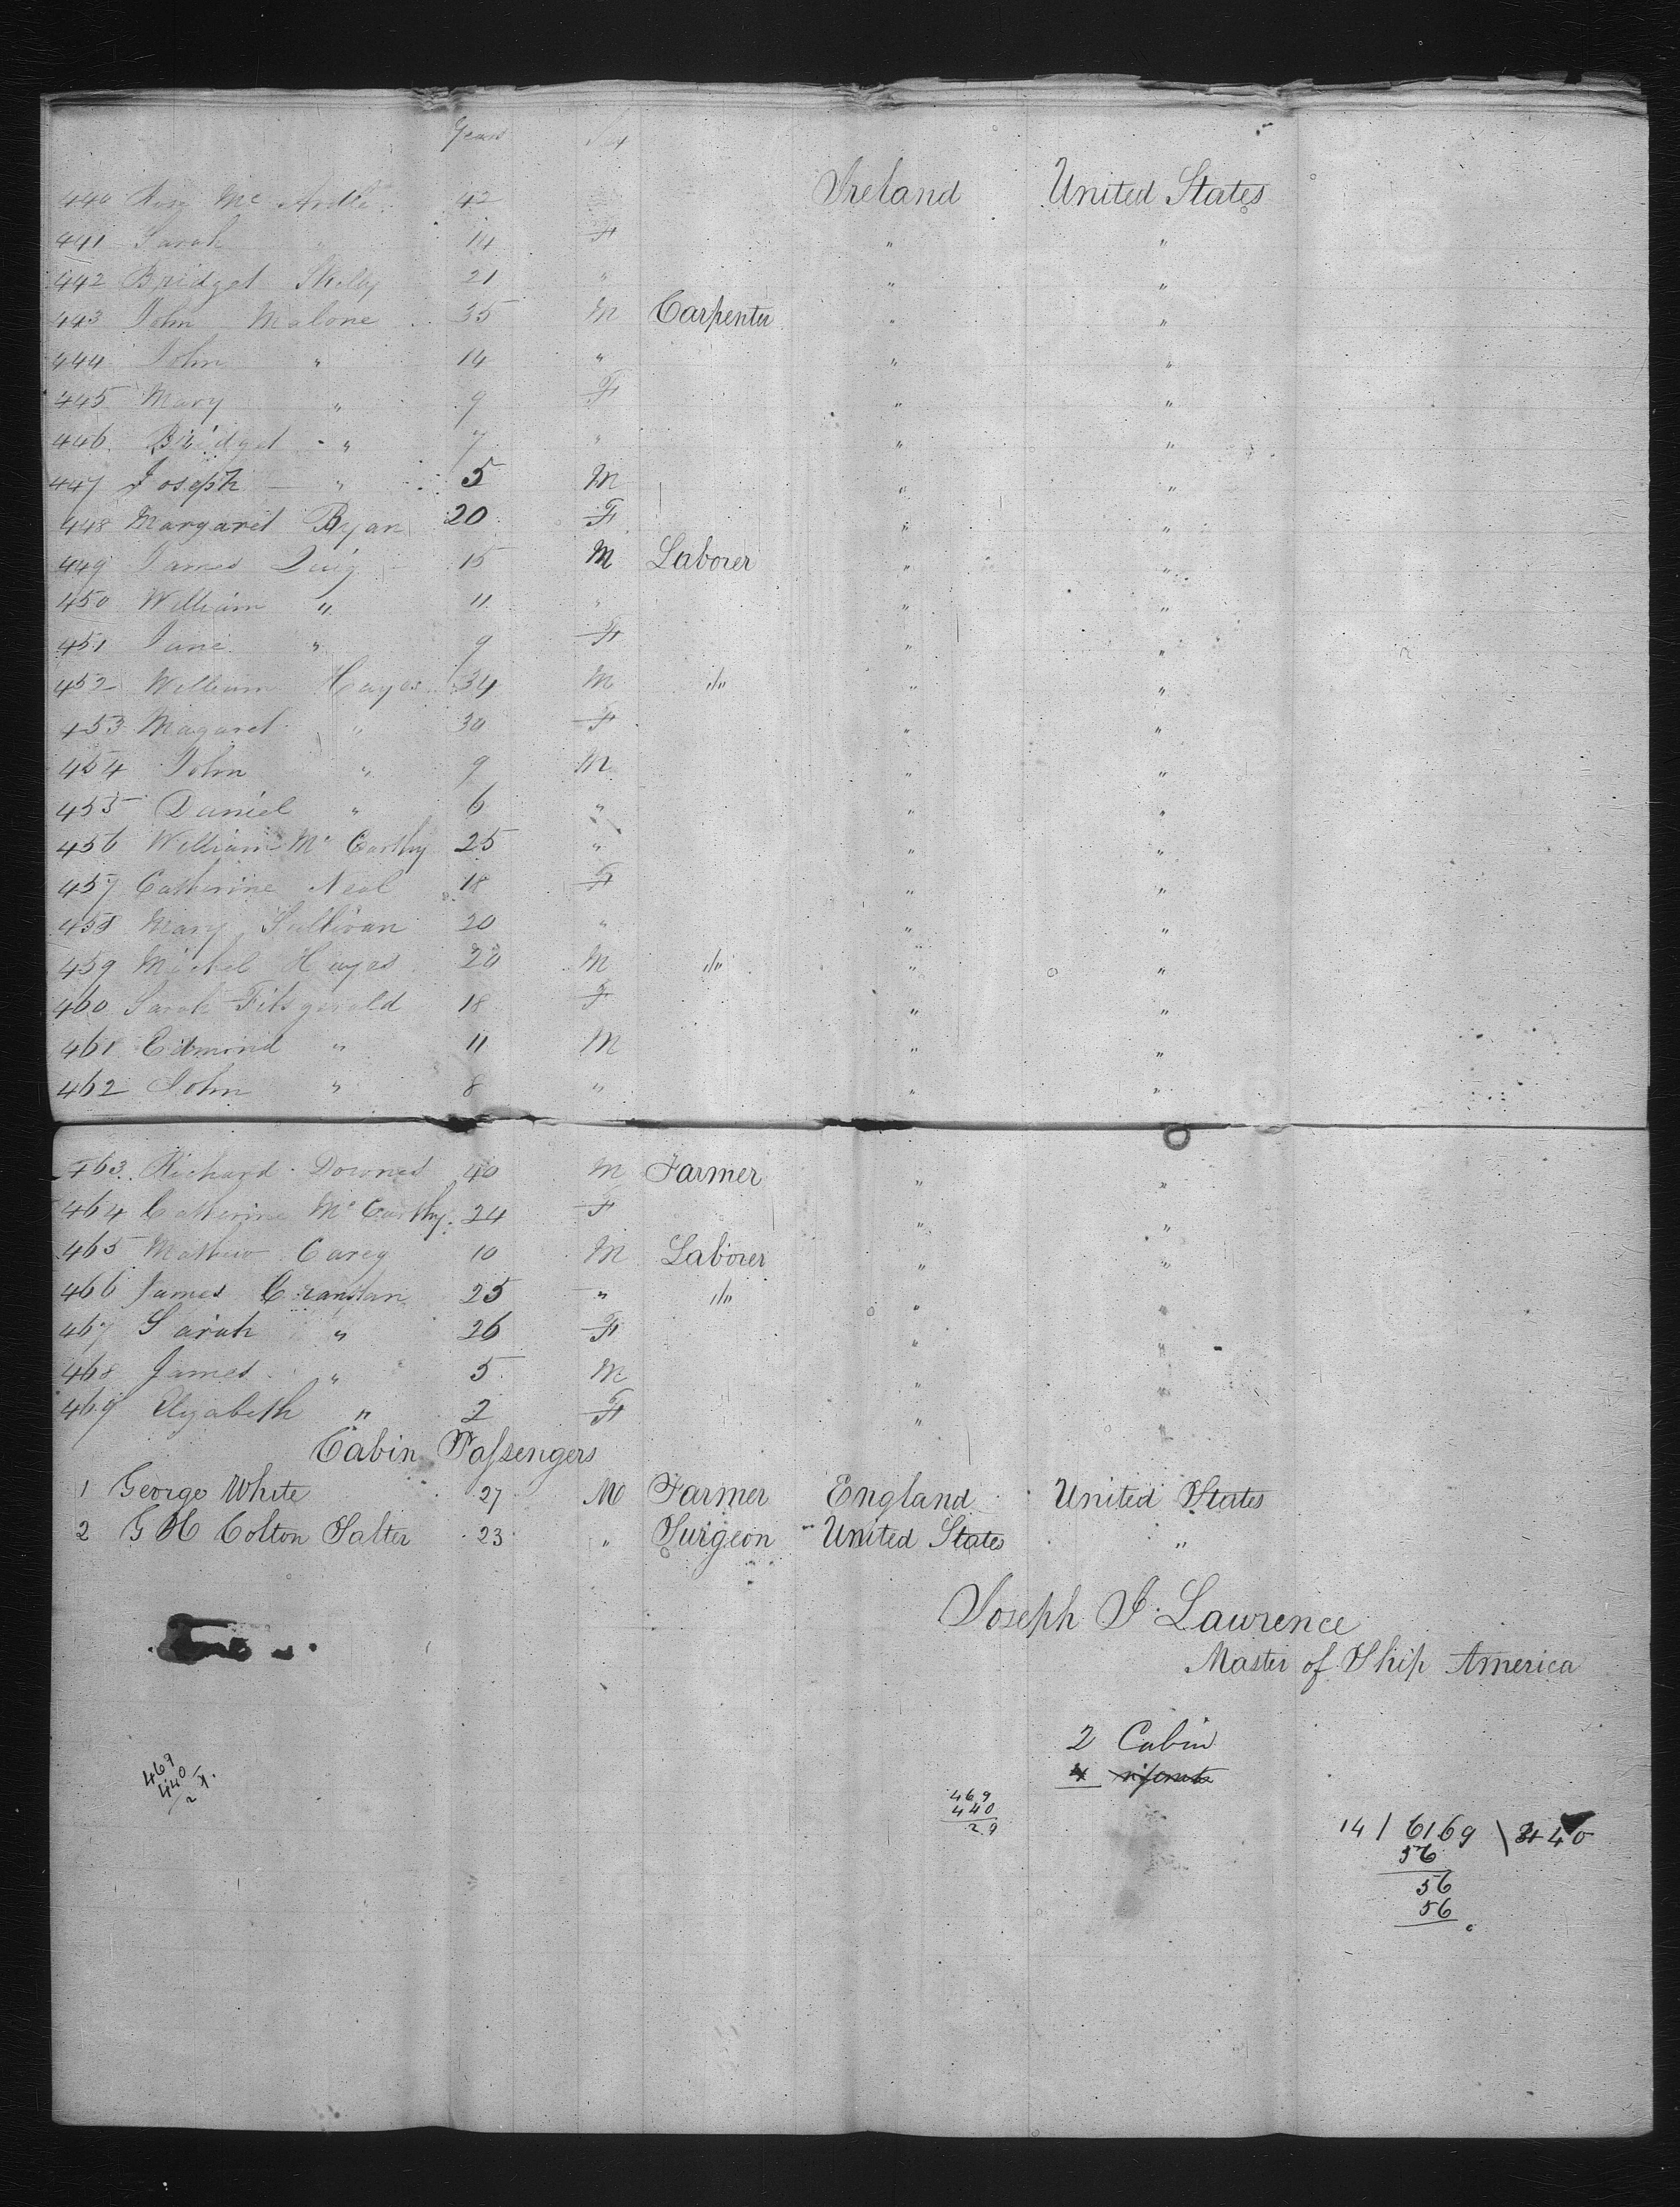 Years Sex
440 Rosy Mc Ardle 42 Ireland United States
441 Sarah " 14 F " "
442 Bridget Skelly 21 " " "
443 John Malone 35 M Carpenter " "
444 John " 14 " " "
445 Mary " 9 F " "
446 Bridget " 7 " " "
447 Joseph " 5 M " "
448 Margaret Ryan 20 F " "
449 James Quig 15 M Laborer " "
450 William " 11 " " "
451 Jane " 9 F " "
452 William Hayes 34 M "/" " "
453 Magaret " 30 F " "
454 John " 9 M " "
455 Daniel " 6 " " "
456 William Mc Carthy 25 " " "
457 Catherine Neal 18 F " "
458 Mary Sullivan 20 " " "
459 Michel Hayes 20 M "/" " "
460 Sarah Fitsgerald 18 F " "
461 Edmond " 11 M " "
462 John " 8 " " "
463 Richard Downes 40 M Farmer " "
464 Catherine Mc Carthy 24 F " "
465 Mathew Carey 10 M Laborer " "
466 James Cranstan 25 " "/" " "
467 Sarah " 26 F " "
468 James " 5 M " "
469 Elizabeth " 2 F " "
Cabin Passengers
1 George White 27 M Farmer England United States
2 G H Colton Salter 23 " Surgeon United States "
Joseph J. Lawrence
Master of Ship America
2 Cabin
4
469
440
29
469
440
2 9
14 / 6169 \ 440
56
56
56
0